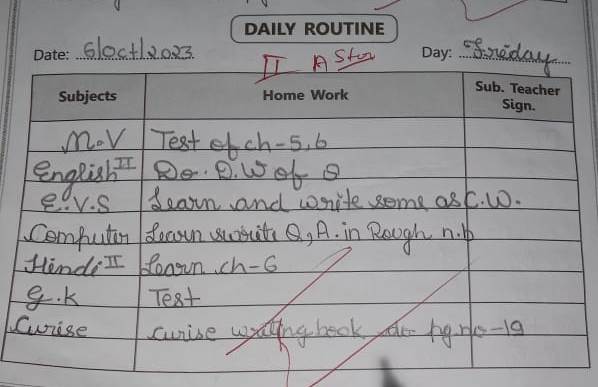 DAILY ROUTINE
Date: 6/Oct/2023 Day: Friday
II A Star
Subjects Home Work Sub. Teacher Sign.
M.V Test of ch-5,6
English II Do. D.W of Q
E.V.S Learn and write some as C.W.
Computer Learn write Q, A. in Rough n.b
Hindi II Learn ch-6
g.k Test
Curise curise writing book do pg.no-19